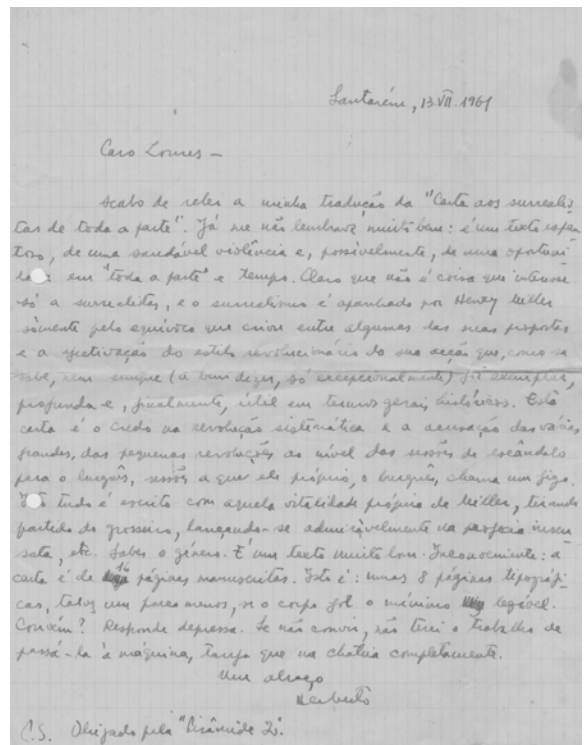 Santarém, 13.VII.1961
Caro Loures –
Acabo de reler a minha tradução da "Carta aos surrealis-
tas de toda a parte". Já me não lembrava muito bem: é um texto espan-
toso, de uma saudável violência e, possivelmente, de uma oportuni-
em "toda a parte" e tempo. Claro que não é coisa que interesse
só a surrealistas, e o surrealismo é apanhado por Henry Miller
sòmente pelo equívoco que criou entre algumas das suas propostas
e a efectivação do estilo revolucionário da sua acção que, como se
sabe, nem sempre (a bem dizer, só excepcionalmente) foi exemplar,
profunda e, finalmente, útil em termos gerais históricos. Esta
carta é o credo na revolução sistemática e a acusação das
fraudes, das pequenas revoluções ao nível das sessões de escândalo
para o burguês, sessões a que ele próprio, o burguês, chama um figo.
tudo é escrito com aquela vitalidade própria de Miller, tirando
partido do grosseiro, lançando-se admiràvelmente na profecia insen-
sata, etc. Sabes o género. É um texto muito bom. Inconveniente: a
carta é de 16 páginas manuscritas. Isto é: umas 8 páginas tipográfi-
cas, talvez um pouco menos, se o corpo for o mínimo legível.
Convém? Responde depressa. Se não convir, não terei o trabalho de
passá-la à máquina, tarefa que me chateia completamente.
Um abraço
Herberto
P.S. Obrigado pela "Pirâmide 2".